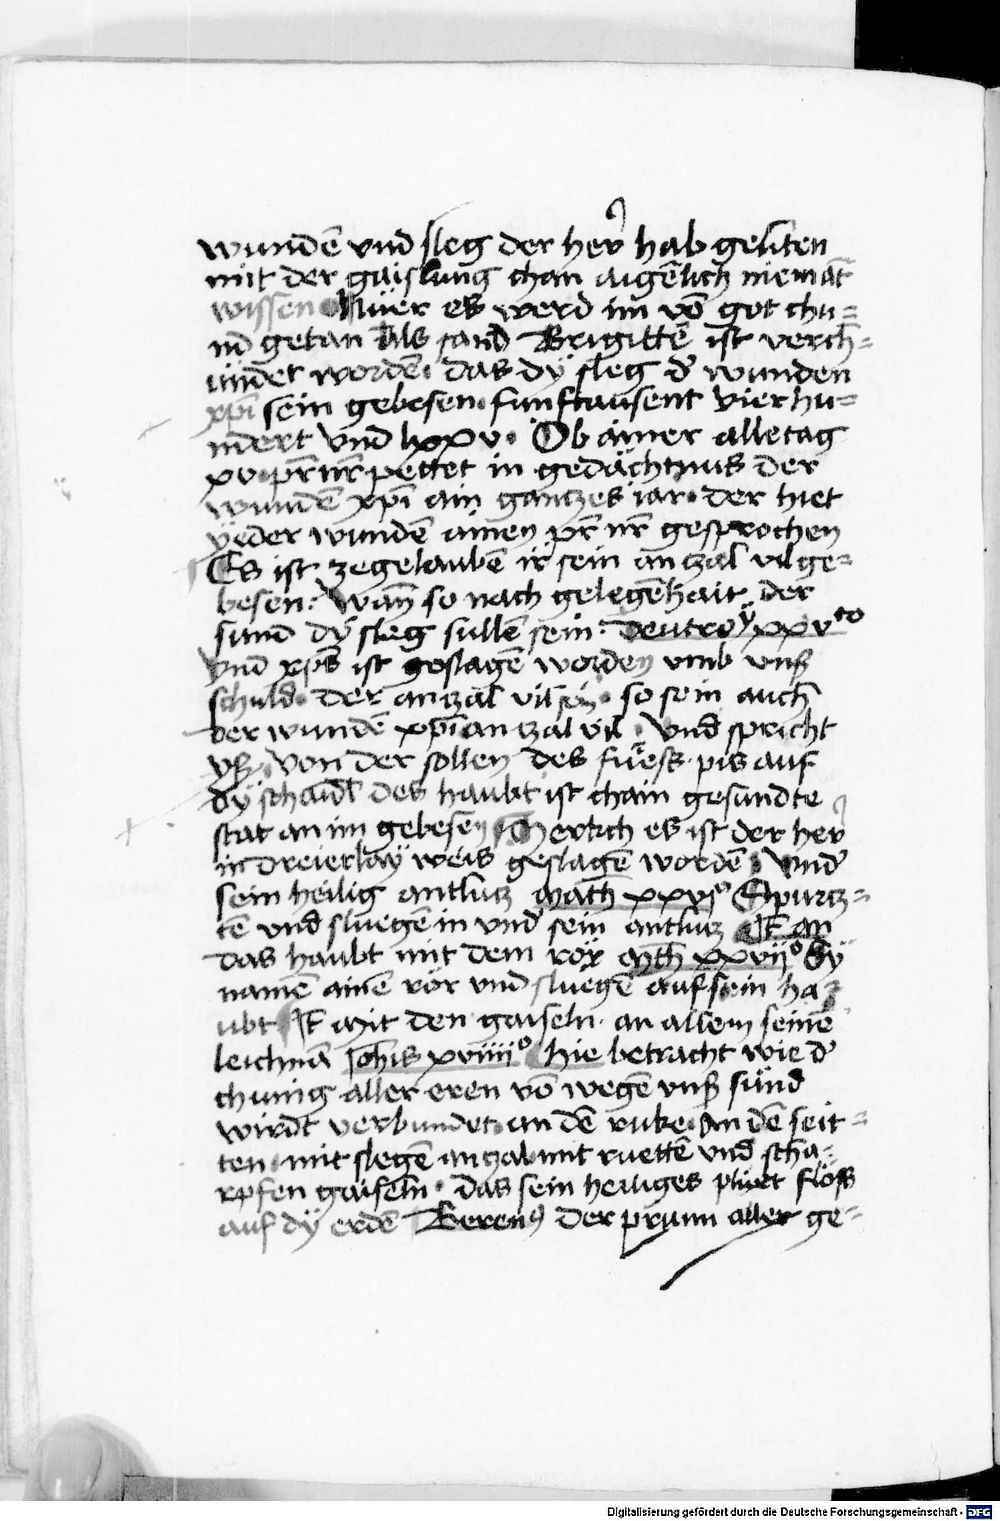 wundē vnd sleg der her hab geliten
mit der gaislung chan aigēlich niemāt
wissen nuer es werd im vō got chu=
nd getan Als sand Brigittē ist verch=
ündet wordē das dÿ sleg dʼ wunden
xpi sein gebesen funftausent vierhu=
ndert vnd lxxv. Ob ainer alletag
xv pr̄ nr̄ pettet in gedächtnus der
wundē xpi ain gantzes iar der hiet
ÿeder wundē ainen pr̄ nr̄ gesprochen
Es ist zegelaubē ir sein an tzal vil ge=
besen. Wan̄ so nach gelegēhait der
sund dÿ sleg sullē sein. deutroÿ xxvto
vnd xp̄s ist geslagē worden vmb vnß
schuld. der an zal vil sein. so sein auch
der wundē xpi an tzal vil. Vnd spricht
von der sollen des füess pis auf
dÿ schaidl des haubt ist chain gesundte
stat an im gebesen Merkch es ist der her
in dreierlaÿ weis geslagē wordē Vndʼ
sein heilig antlutz Math xxvio Spurtz=
tē vnd sluegē in vndʼ sein antlutz It̄ an
das haubt mit dem rör Mth xxviio Sÿ
namē ainē rör vnd sluegē auf sein ha=
ubt It̄ mit den gaiseln an allem seinē
leichnā Johis xviiiio hie betracht wie dʼ
chunig aller eren vō wegē vnß sünd
wirdt verbundet an dē ruke an dē seit=
ten mit slegē an zal mit ruettē vnd scha=
rpfen gaiseln. das sein heiliges pluet flöss
auf dÿ erdē Beren9 der prunn aller ge=
Digitalisierung gefördert durch die Deutsche Forschungsgemeinschaft - DFG